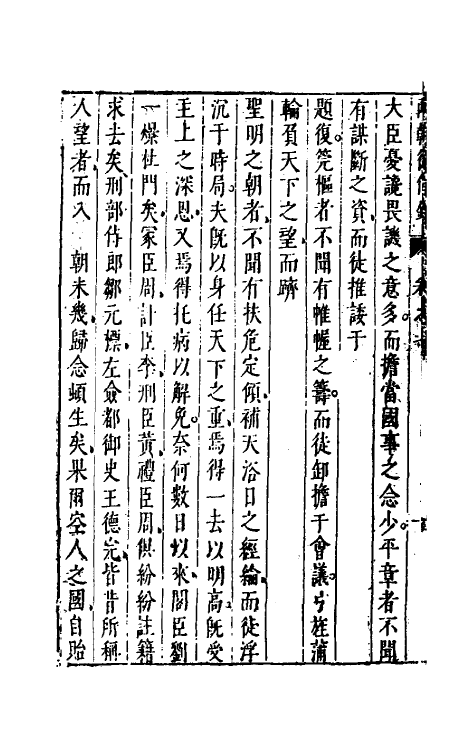 大臣憂讒畏譏之意多而擔當國事之念少平章者不聞
有謀斷之資而徒推諉于
題復筦樞者不聞有帷幄之籌而徒卸擔于會議弓旌蒲
輪負天下之望而躋
聖明之朝者不聞有扶危定傾補天浴日之經綸而徒浮
沉于時局夫旣以身任天下之重焉得一去以明高旣受
主上之深恩又焉得托病以解免奈何數日以來閣臣劉
一燝杜門矣冡臣周計臣李刑臣黃禮臣周俱紛紛註籍
求去矣刑部侍郎鄒元標左僉都御史王德完皆昔所稱
人望者而入　朝未幾歸念頓生矣果爾空人之國自貽